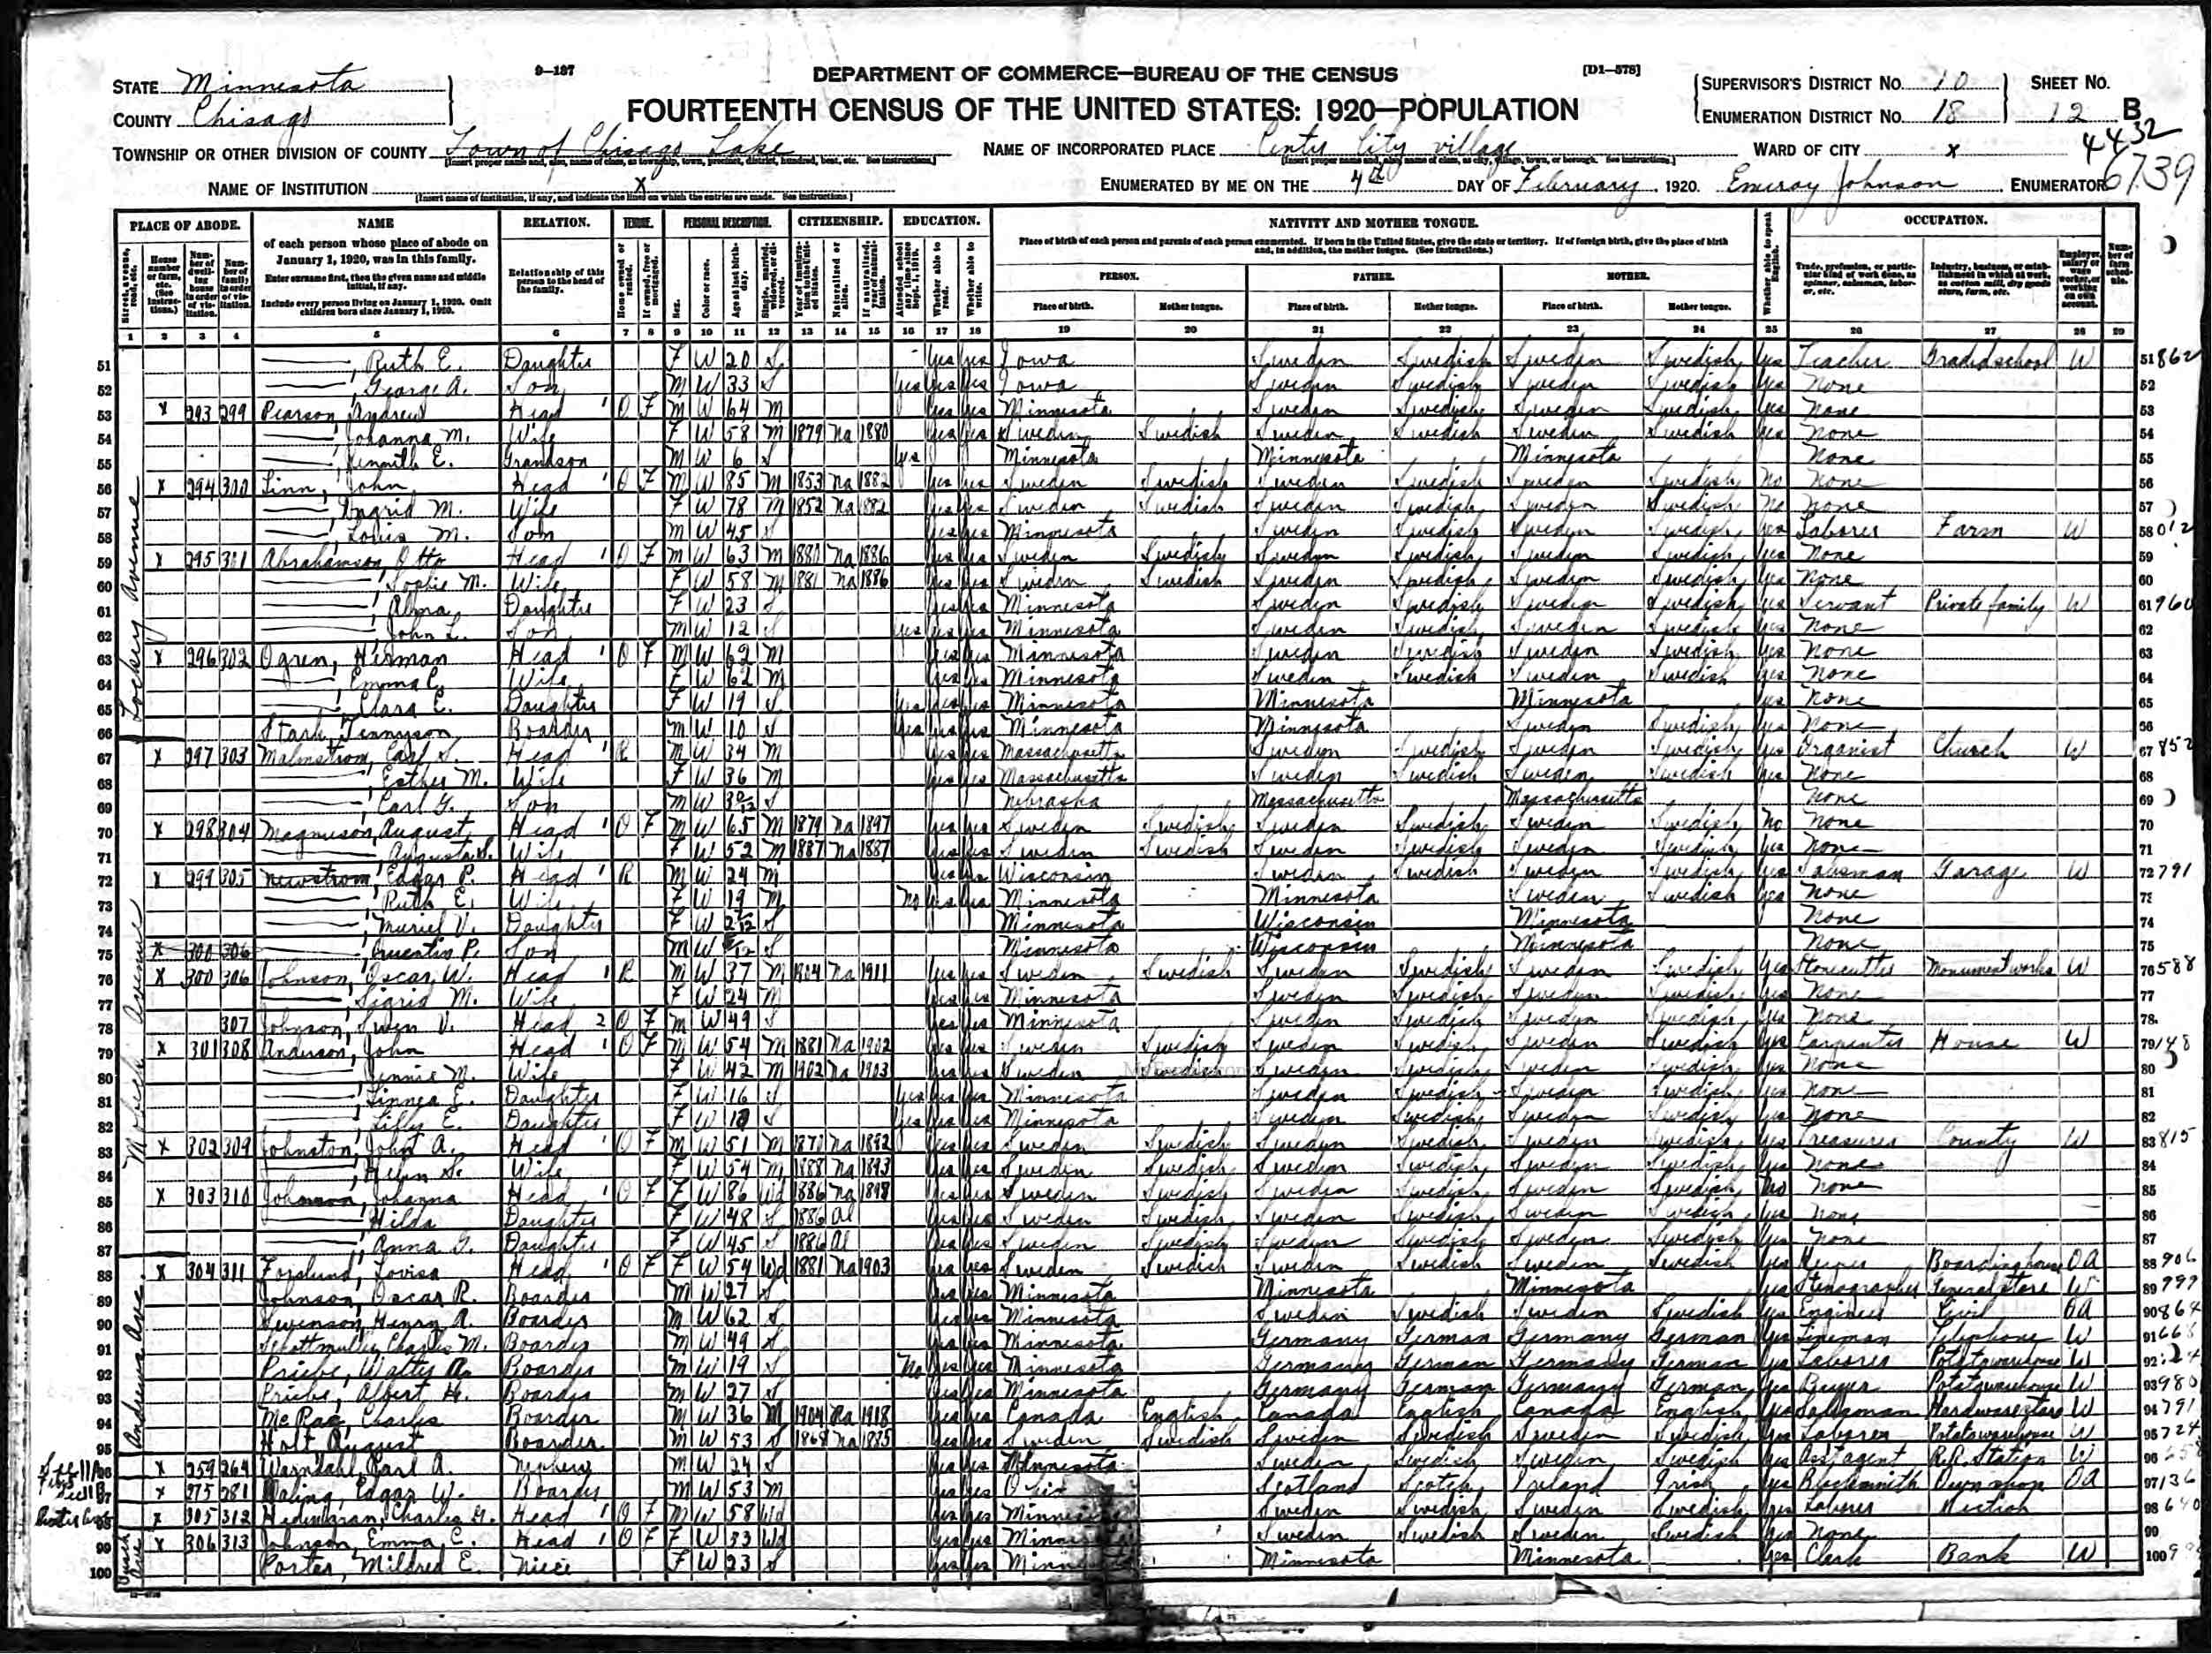 9-187
DEPARTMENT OF COMMERCE—BUREAU OF THE CENSUS
[D1-578]
STATE Minnesota
COUNTY Chisago
FOURTEENTH CENSUS OF THE UNITED STATES: 1920—POPULATION
SUPERVISOR'S DISTRICT No. 10
ENUMERATION DISTRICT No. 18
SHEET No. 12 B
4432
6739
TOWNSHIP OR OTHER DIVISION OF COUNTY Town of Chisago Lake
NAME OF INCORPORATED PLACE City village
WARD OF CITY x
NAME OF INSTITUTION x
ENUMERATED BY ME ON THE 4th DAY OF February, 1920. Emeroy Johnson, ENUMERATOR
PLACE OF ABODE. NAME RELATION. TENURE. PERSONAL DESCRIPTION. CITIZENSHIP. EDUCATION. NATIVITY AND MOTHER TONGUE. OCCUPATION.
of each person whose place of abode on January 1, 1920, was in this family.
Enter surname first, then the given name and middle initial, if any.
Include every person living on January 1, 1920. Omit children born since January 1, 1920.
Relationship of this person to the head of the family.
Place of birth of each person and parents of each person enumerated. If born in the United States, give the state or territory. If of foreign birth, give the place of birth and, in addition, the mother tongue. (See instructions.)
PERSON. FATHER. MOTHER.
Place of birth. Mother tongue. Place of birth. Mother tongue. Place of birth. Mother tongue.
1 2 3 4 5 6 7 8 9 10 11 12 13 14 15 16 17 18 19 20 21 22 23 24 25 26 27 28 29
51 Ruth E. Daughter F W 20 S Yes Yes Iowa Sweden Swedish Sweden Swedish Yes Teacher Graded school W 51
52 George A. Son M W 33 S Yes Yes Yes Iowa Sweden Swedish Sweden Swedish Yes None 52
53 x 293 299 Pearson, Andrew Head 1 O F M W 64 M Yes Yes Minnesota Sweden Swedish Sweden Swedish Yes None 53
54 Johanna M. Wife F W 58 M 1879 Na 1880 Yes Yes Sweden Swedish Sweden Swedish Sweden Swedish Yes None 54
55 E. Grandson M W 6 S Yes Minnesota Minnesota Minnesota None 55
56 x 294 300 Linn, John Head 1 O F M W 85 M 1853 Na 1882 Yes Yes Sweden Swedish Sweden Swedish Sweden Swedish No None 56
57 Ingrid M. Wife F W 78 M 1852 Na 1882 Yes Yes Sweden Swedish Sweden Swedish Sweden Swedish No None 57
58 Louis M. Son M W 45 S Yes Yes Minnesota Sweden Swedish Sweden Swedish Yes Laborer Farm W 58
59 x 295 301 Abrahamson, Otto Head 1 O F M W 63 M 1880 Na 1886 Yes Yes Sweden Swedish Sweden Swedish Sweden Swedish Yes None 59
60 Sophie M. Wife F W 58 M 1881 Na 1886 Yes Yes Sweden Swedish Sweden Swedish Sweden Swedish Yes None 60
61 Alma Daughter F W 23 S Yes Yes Minnesota Sweden Swedish Sweden Swedish Yes Servant Private family W 61
62 John L. Son M W 12 S Yes Yes Yes Minnesota Sweden Swedish Sweden Swedish Yes None 62
63 x 296 302 Ogren, Herman Head 1 O F M W 62 M Yes Yes Minnesota Sweden Swedish Sweden Swedish Yes None 63
64 Emma C. Wife F W 62 M Yes Yes Minnesota Sweden Swedish Sweden Swedish Yes None 64
65 Clara E. Daughter F W 19 S Yes Yes Yes Minnesota Minnesota Minnesota Yes None 65
66 Stark, Tennyson Boarder M W 10 S Yes Yes Yes Minnesota Minnesota Sweden Swedish Yes None 66
67 x 297 303 Malmstrom, Carl S. Head 1 R M W 34 M Yes Yes Massachusetts Sweden Swedish Sweden Swedish Yes Organist Church W 67 852
68 Esther M. Wife F W 36 M Yes Yes Massachusetts Sweden Swedish Sweden Swedish Yes None 68
69 Carl G. Son M W S Nebraska Massachusetts Massachusetts None 69
70 x 298 304 Magnuson, August Head 1 O F M W 65 M 1879 Na 1897 Yes Yes Sweden Swedish Sweden Swedish Sweden Swedish No None 70
71 Augusta S. Wife F W 52 M 1887 Na 1887 Yes Yes Sweden Swedish Sweden Swedish Sweden Swedish Yes None 71
72 x 299 305 Newstrom, Edgar P. Head 1 R M W 24 M Yes Yes Wisconsin Sweden Swedish Sweden Swedish Yes Salesman Garage W 72 791
73 Ruth E. Wife F W 19 M No Yes Yes Minnesota Minnesota Sweden Swedish Yes None 73
74 Muriel V. Daughter F W S Minnesota Wisconsin Minnesota None 74
75 x 300 306 Quentin P. Son M W S Minnesota Wisconsin Minnesota None 75
76 x 300 306 Johnson, Oscar W. Head 1 R M W 37 M 1904 Na 1911 Yes Yes Sweden Swedish Sweden Swedish Sweden Swedish Yes Stonecutter Monument works W 76 588
77 Sigrid M. Wife F W 24 M Yes Yes Minnesota Sweden Swedish Sweden Swedish Yes None 77
78 307 Johnson, Swen V. Head 2 O F M W 49 S Yes Yes Minnesota Sweden Swedish Sweden Swedish Yes None 78
79 x 301 308 Anderson, John Head 1 O F M W 54 M 1881 Na 1902 Yes Yes Sweden Swedish Sweden Swedish Sweden Swedish Yes Carpenter House W 79
80 Jennie M. Wife F W 42 M 1902 Na 1903 Yes Yes Sweden Swedish Sweden Swedish Sweden Swedish Yes None 80
81 Linnea E. Daughter F W 16 S Yes Yes Yes Minnesota Sweden Swedish Sweden Swedish Yes None 81
82 Lilly E. Daughter F W S Yes Yes Yes Minnesota Sweden Swedish Sweden Swedish Yes None 82
83 x 302 309 Johnston, John A. Head 1 O F M W 51 M Na 1892 Yes Yes Sweden Swedish Sweden Swedish Sweden Swedish Yes Treasurer County W 83 815
84 Helen S. Wife F W 54 M 1888 Na 1893 Yes Yes Sweden Swedish Sweden Swedish Sweden Swedish Yes None 84
85 x 303 310 Johnson, Johanna Head 1 O F F W 86 Wd 1886 Na 1898 Yes Yes Sweden Swedish Sweden Swedish Sweden Swedish No None 85
86 Hilda Daughter F W 48 S 1886 Al Yes Yes Sweden Swedish Sweden Swedish Sweden Swedish Yes None 86
87 Anna G. Daughter F W 45 S 1886 Al Yes Yes Sweden Swedish Sweden Swedish Sweden Swedish Yes None 87
88 x 304 311 Forslund, Lovisa Head 1 O F F W 54 Wd 1881 Na 1903 Yes Yes Sweden Swedish Sweden Swedish Sweden Swedish Yes Keeper Boardinghouse OA 88 906
89 Johnson, Oscar R. Boarder M W 27 S Yes Yes Minnesota Minnesota Minnesota Yes Stenographer General store W 89
90 Swenson, Henry A. Boarder M W 62 S Yes Yes Minnesota Sweden Swedish Sweden Swedish Yes Engineer Civil OA 90 864
91 Schottmuller, Charles M. Boarder M W 49 S Yes Yes Minnesota Germany German Germany German Yes Lineman Telephone W 91
92 Priebe, Walter A. Boarder M W 19 S No Yes Yes Minnesota Germany German Germany German Yes Laborer Potato warehouse W 92
93 Priebe, Albert H. Boarder M W 27 S Yes Yes Minnesota Germany German Germany German Yes Buyer Potato warehouse W 93 980
94 McRae, Charles Boarder M W 36 M 1904 Na 1918 Yes Yes Canada English Canada English Canada English Yes Salesman Hardware store W 94 791
95 Holt, August Boarder M W 53 S 1868 Na 1885 Yes Yes Sweden Swedish Sweden Swedish Sweden Swedish Yes Laborer Potato warehouse W 95 724
96 x 259 264 Warndahl, Carl A. Nephew M W 24 S Yes Yes Minnesota Sweden Swedish Sweden Swedish Yes Asst agent R.R. Station W 96
97 x 275 281 Maling, Edgar W. Boarder M W 53 M Yes Yes Ohio Scotland Scotch Ireland Irish Yes Blacksmith Own shop OA 97 136
98 x 305 312 Charles G. Head 1 O F M W 58 Wd Yes Yes Minnesota Sweden Swedish Sweden Swedish Yes Laborer Section 98
99 x 306 313 Johnson, Emma C. Head 1 O F F W 33 Wd Yes Yes Minnesota Sweden Swedish Sweden Swedish Yes None 99
100 Porter, Mildred E. Niece F W 23 S Yes Yes Minnesota Minnesota Minnesota Yes Clerk Bank W 100